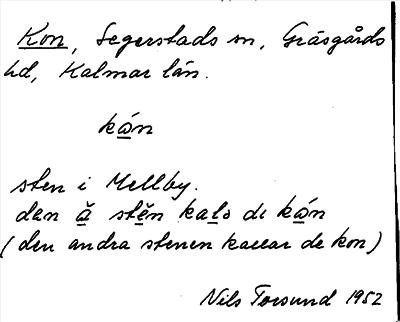 Kon, Segerstads sn, Gräsgårds
hd, Kalmar län.
kó̲n
sten i Mellby.
den ă̲ stĕ̲n kal̲ə dı kó̲n
(den andra stenen kallar de kon)
Nils Torsund 1952